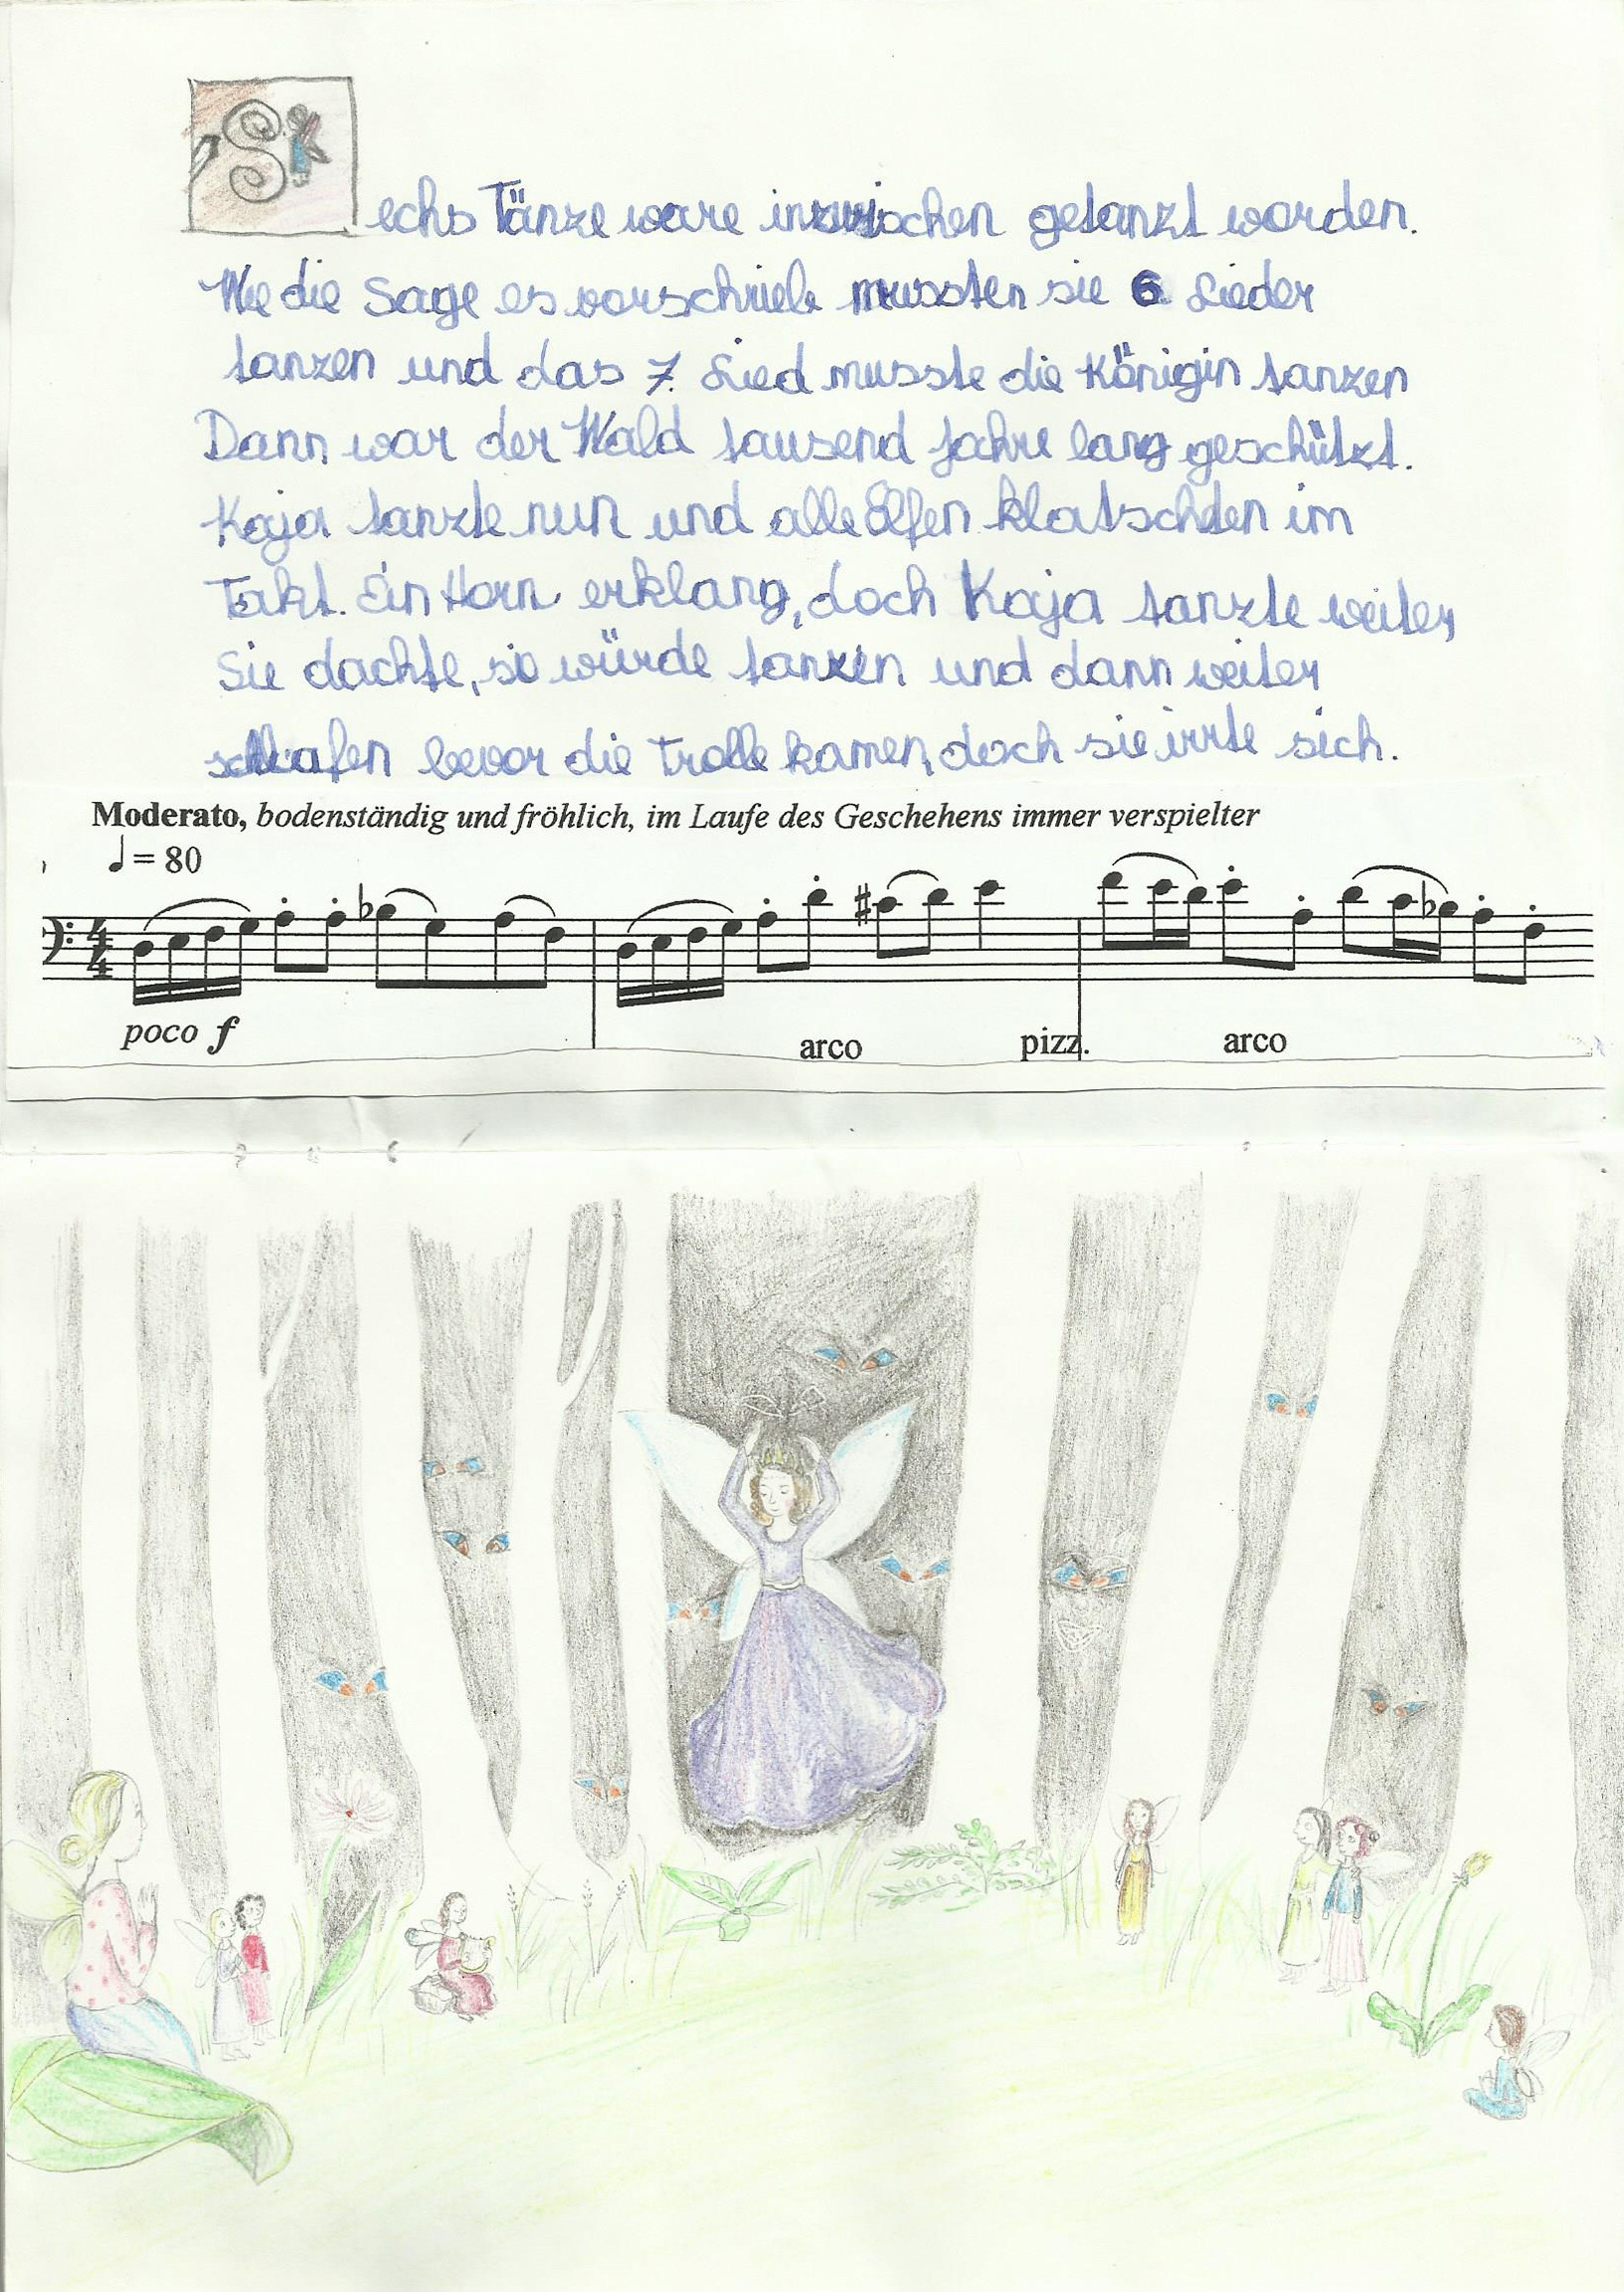 Sechs Tänze ware inzwischen getanzt worden.
Wie die Sage es vorschrieb mussten sie 6 Lieder
tanzen und das 7. Lied musste die Königin tanzen
Dann war der Wald tausend Jahre lang geschützt.
Kaja tanzte nun und alle Elfen klatschten im
Takt. Ein Horn erklang, doch Kaja tanzte weiter,
Sie dachte, sie würde tanzen und dann weiter
schlafen bevor die Trolle kamen, doch sie irrte sich.
Moderato, bodenständig und fröhlich, im Laufe des Geschehens immer verspielter
♩ = 80
4/4
poco f arco pizz. arco